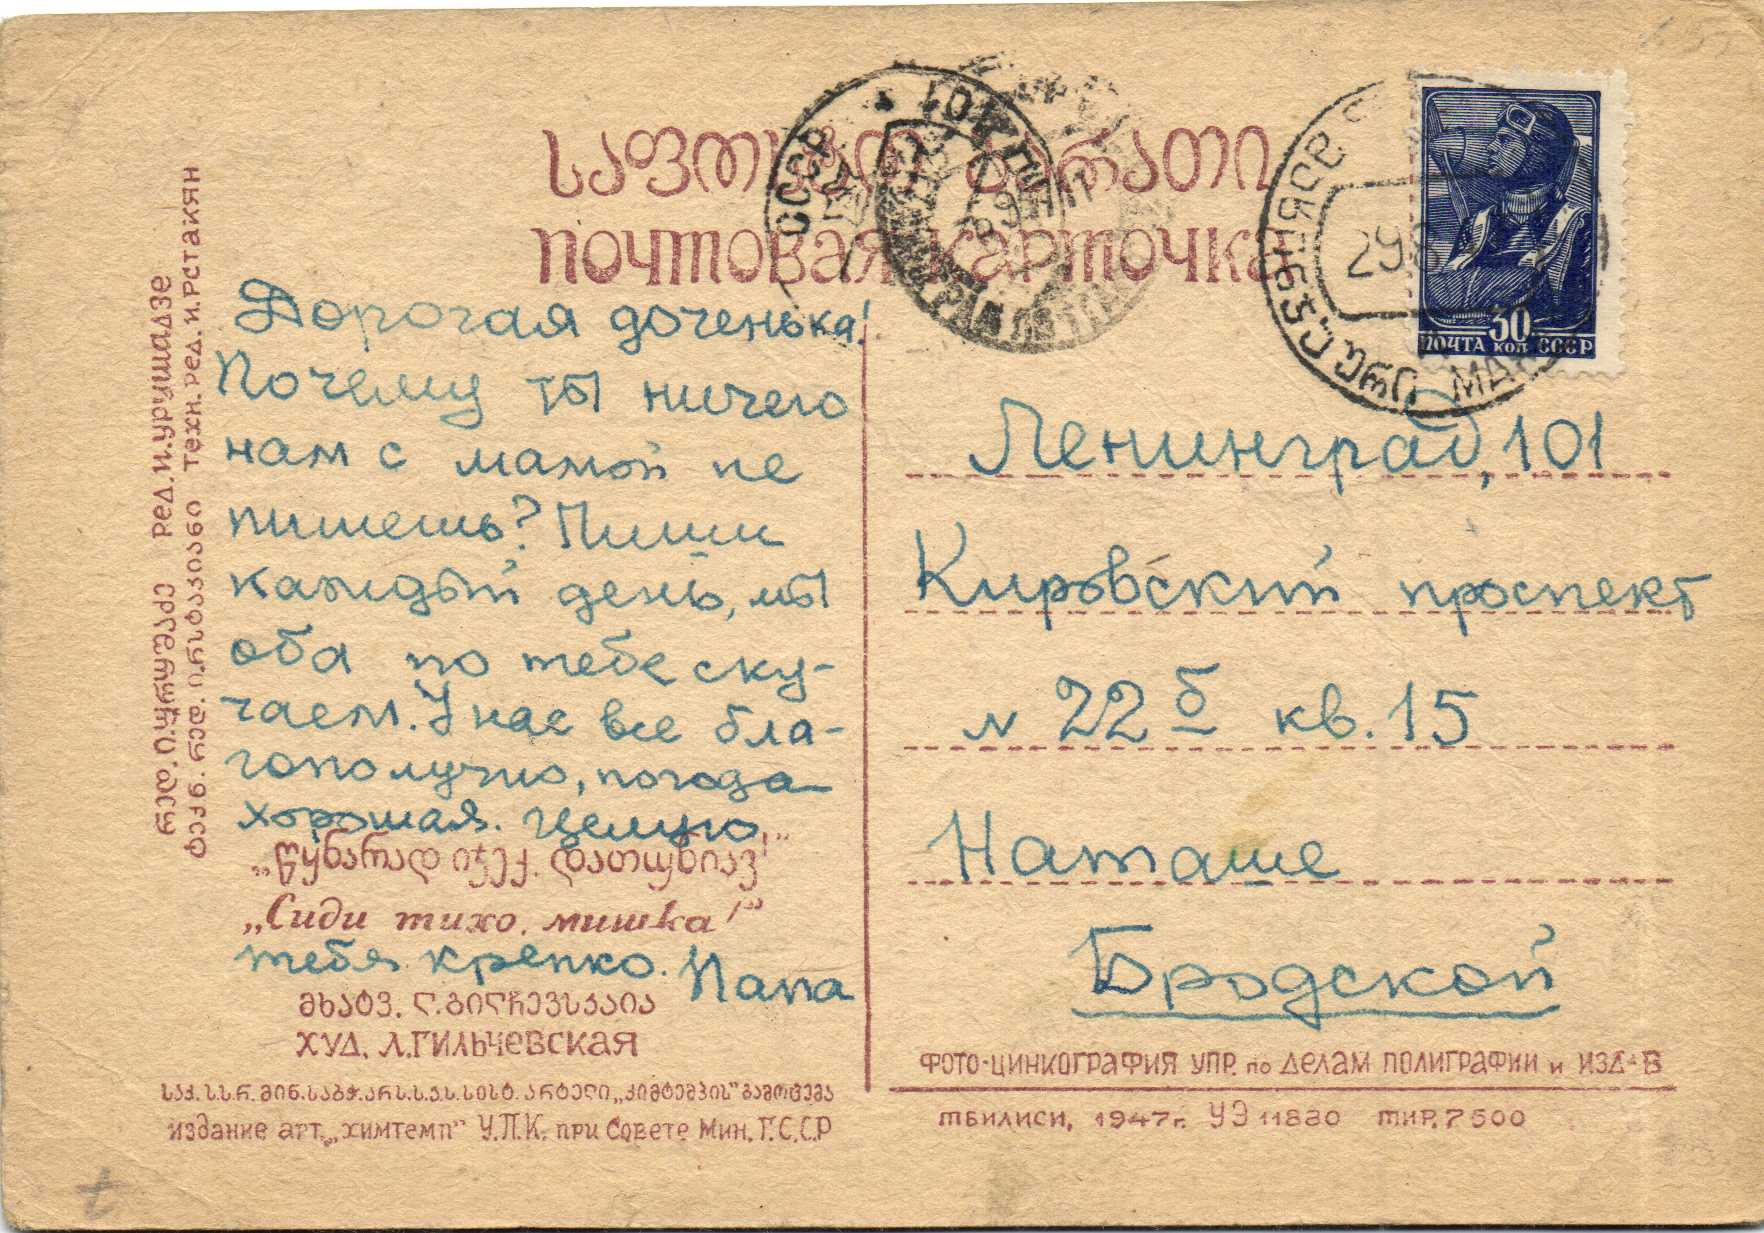 საფოსტო ბარათი
ПОЧТОВАЯ КАРТОЧКА
Дорогая доченька!
Почему ты ничего
нам с мамой не
пишешь? Пиши
каждый день, мы
оба по тебе ску-
чаем. У нас все бла-
гополучно, погода
хорошая. Целую
„წყნარად იჯექ, დათუნიავ!"
„Сиди тихо, мишка!"
тебя крепко. Папа
მხატვ. ლ. გილჩევსკაია
ХУД. Л. ГИЛЬЧЕВСКАЯ
საქ. ს.ს.რ. მინ. საბჭ. არს.ს.კ.ს. სისტ. არტელი „ქიმტემპის" გამოცემა
издание арт. „химтемп" У.П.К. при Совете Мин. Г.С.С.Р
რედ. ი. ურუშაძე РЕД. И. УРУШАДЗЕ
ტექნ. რედ. ი. რსტაკიანი ТЕХН. РЕД. И. РСТАКЯН
СССР
29
30
ПОЧТА КОП СССР
Ленинград, 101
Кировский проспект
N 22 б кв. 15
Наташе
Бродской
ФОТО-ЦИНКОГРАФИЯ УПР. по ДЕЛАМ ПОЛИГРАФИИ и ИЗД-В
ТБИЛИСИ, 1947г. УЭ 11830 ТИР. 7500